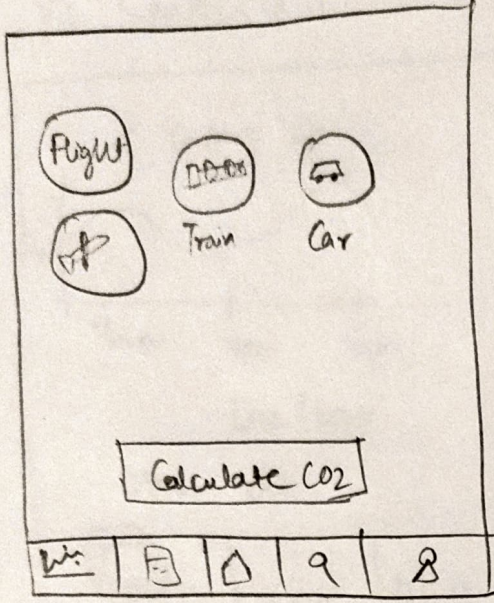 Flight
Train
Car
Calculate CO2